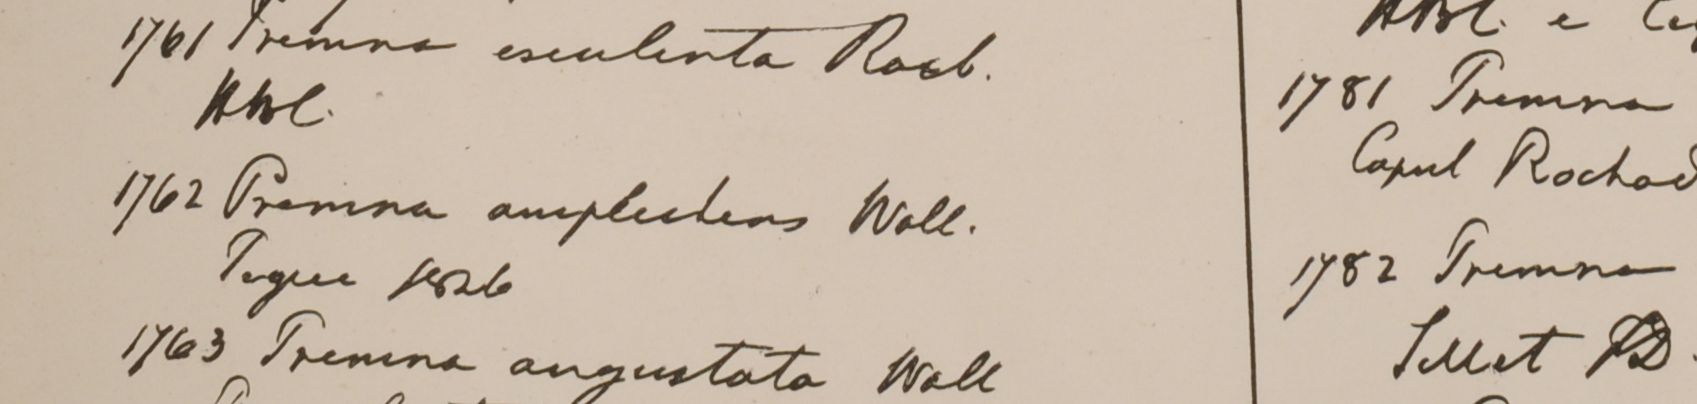 1761 Premna esculenta Roxb.
HBC.
1762 Premna amplectens Wall.
Pegue 1826
1763 Premna angustata Wall
HBC. e
1781 Premna
Capul
1782 Premna
Sillet FD